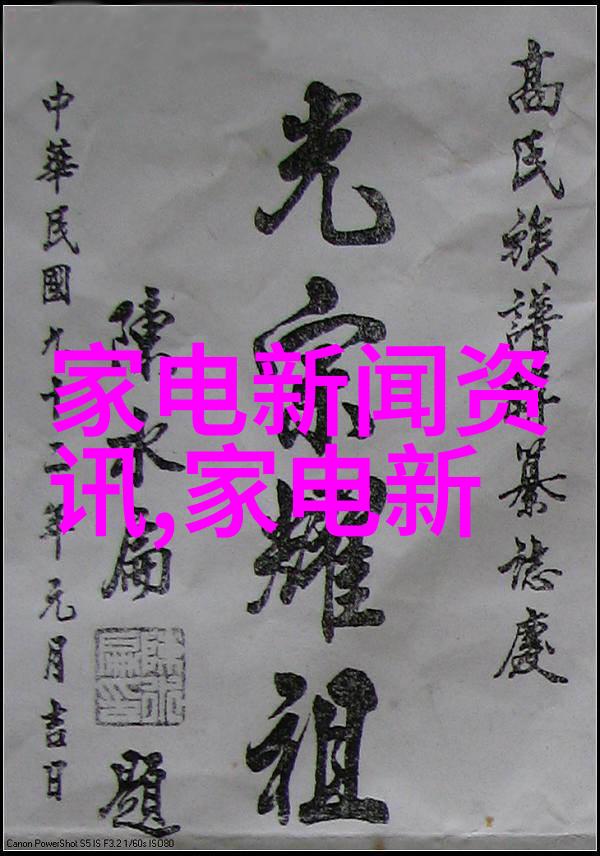 高氏族譜纂誌慶
光宗耀祖
陳水扁
題
中華民國九十二年元月吉日
家电新闻资
讯,家电新
Canon PowerShot S5 IS F3.2 1/60s ISO80